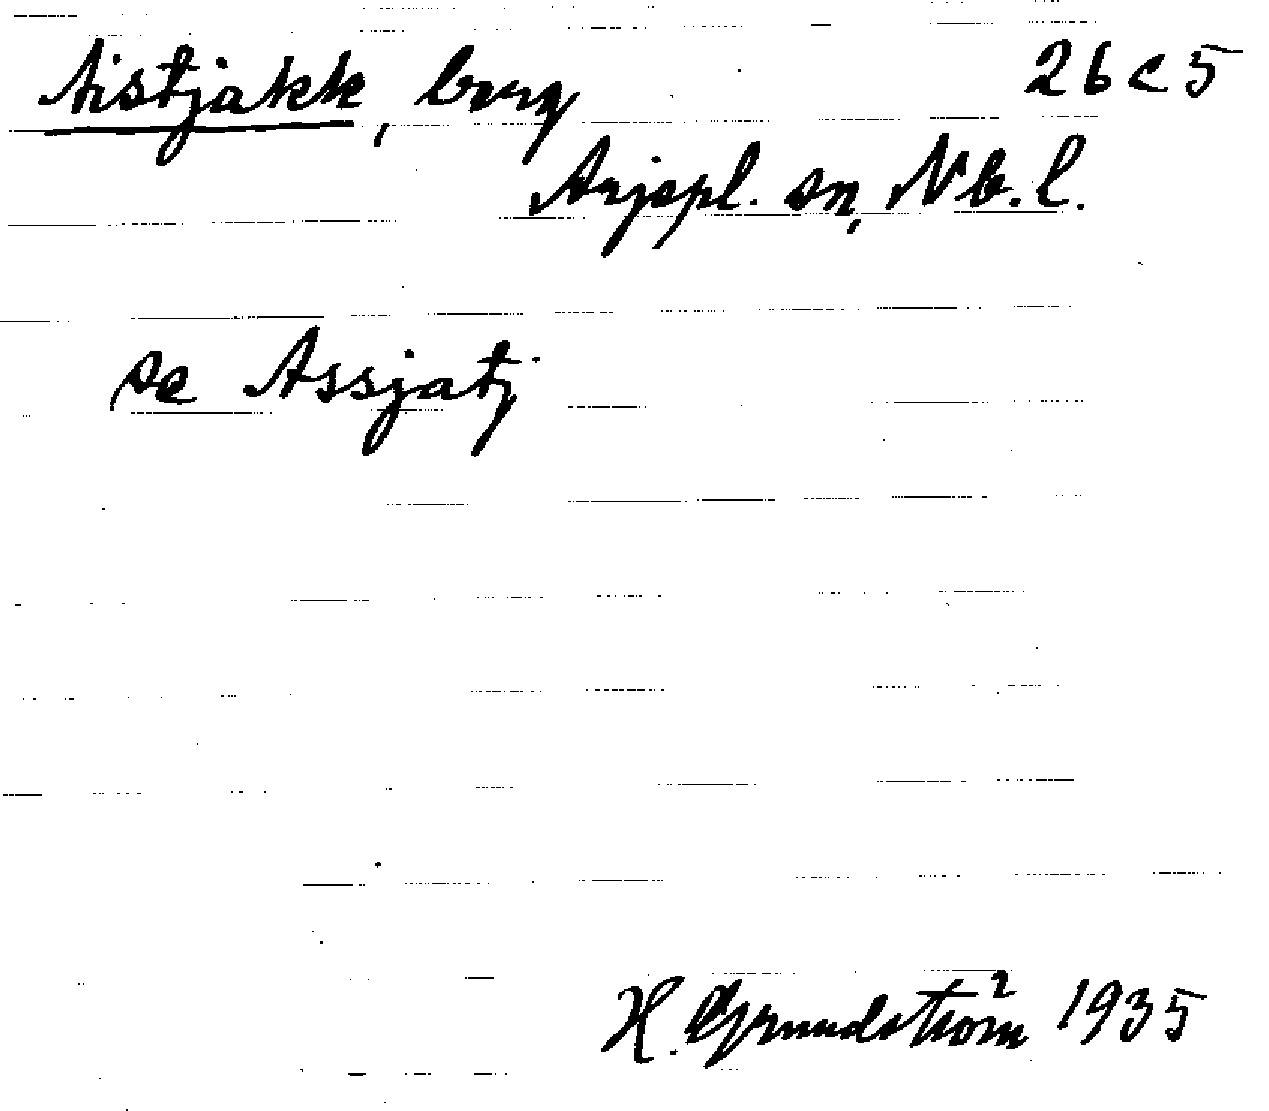 Aistjakk, berg 26 c 5
Arjepl. sn, Nb. l.
se Assjatj
H. Grundström 1935